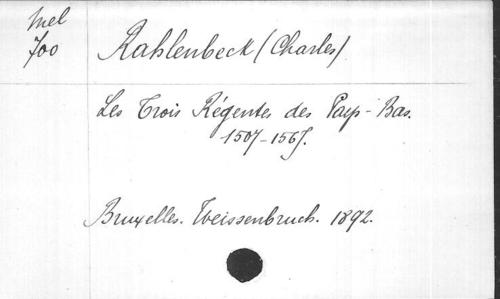 Mel
700
Rahlenbeck (Charles)
Les Trois Régentes des Pays-Bas.
1507-1567.
Bruxelles. Weissenbruch. 1892.